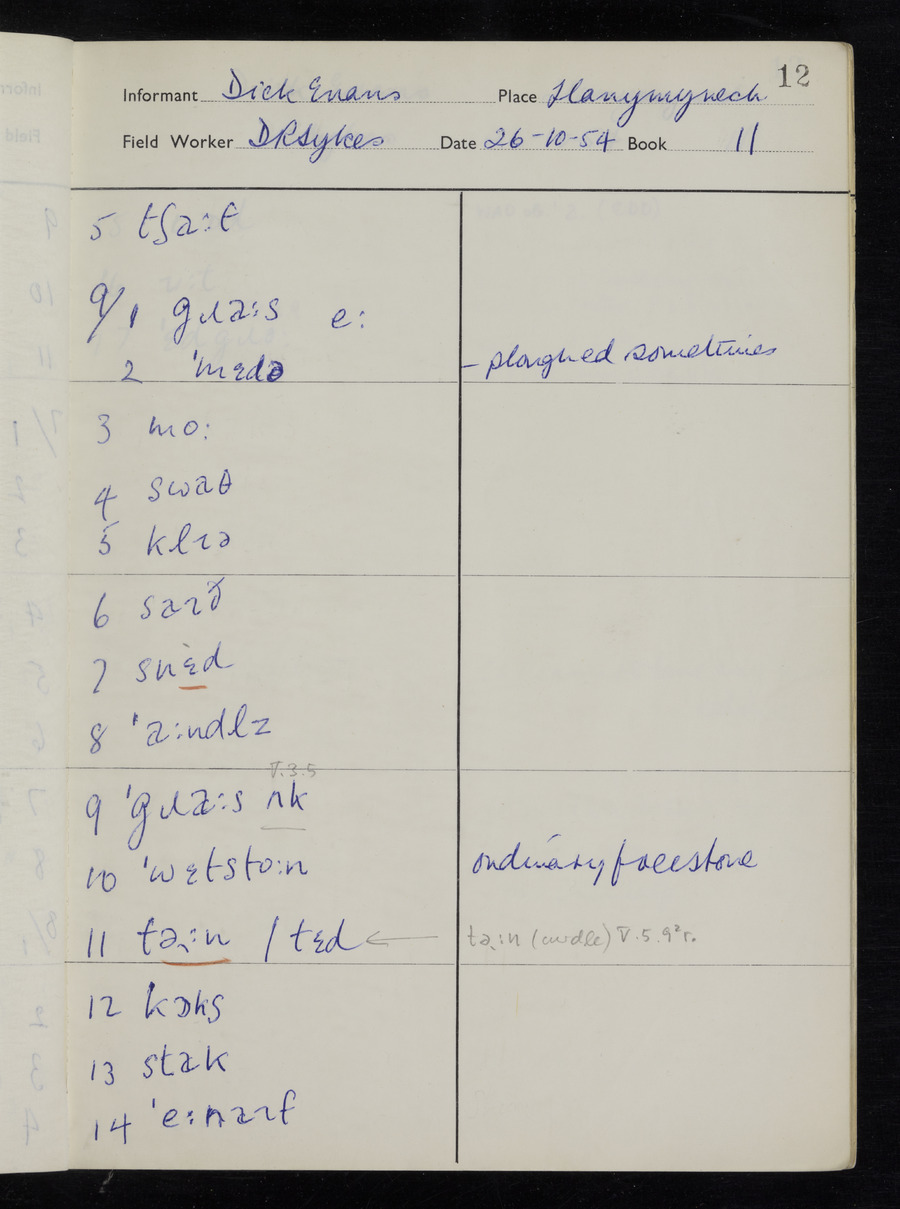 12
Informant Dick Evans Place Llanymynech
Field Worker DRSykes Date 26-10-54 Book 11
5 tʃa:f
9/1 gɹa:s e:
2 ˈmɛdə - ploughed sometimes
3 mo:
4 swaθ
5 klɪə
6 saɪð
7 snɛd
8 ˈa:ndlz
V.3.5
9 ˈgɹa:s nk
10 ˈwɛtsto:n ordinary freestone
11 ta:n / tɛd ← ta:n (curdle) V.5.9²r.
12 kɒks
13 stak
14 ˈe:ɹaɪf